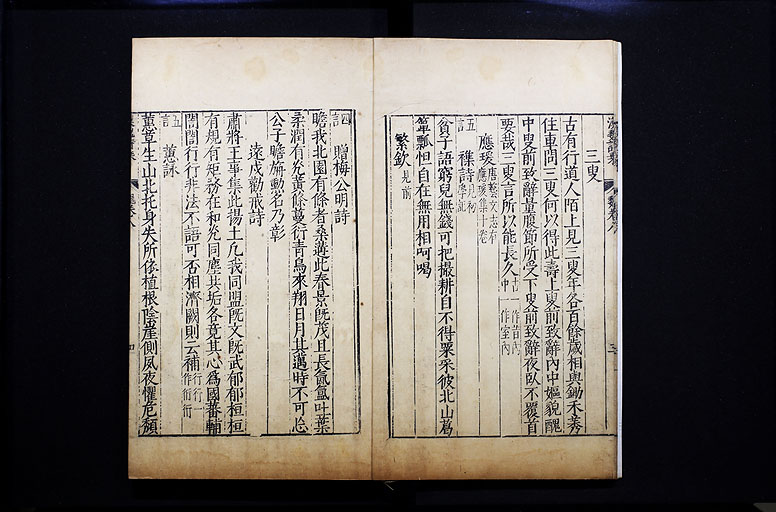 三叟
古有行道人陌上見三叟年各百餘歲相與鋤禾莠
住車問三叟何以得此壽上叟前致辭內中嫗貌醜
中叟前致辭量腹節所受下叟前致辭夜臥不覆首
要哉三叟言所以能長久
應瑗
五言 雜詩
貧子語窮兒無錢可把撮耕自不得粟采彼北山葛
簞瓢恒自在無用相呵喝
繁欽 見前
四言 贈梅公明詩
瞻我北園有條者桑遘此春景既茂且長氤氳吐葉
柔潤有光黃條蔓衍青鳥來翔日月其邁時不可忘
公子瞻旃勳名乃彰
遠戍勸戒詩
肅將王事集此揚土凡我同盟既文既武郁郁桓桓
有規有矩務在和光同塵共垢各竟其心為國蕃輔
誾誾行行非法不語可否相濟闕則云補 行行一作衎衎
五言 蕙詠
蕙草生山北托身失所依植根陰崖側夙夜懼危頹